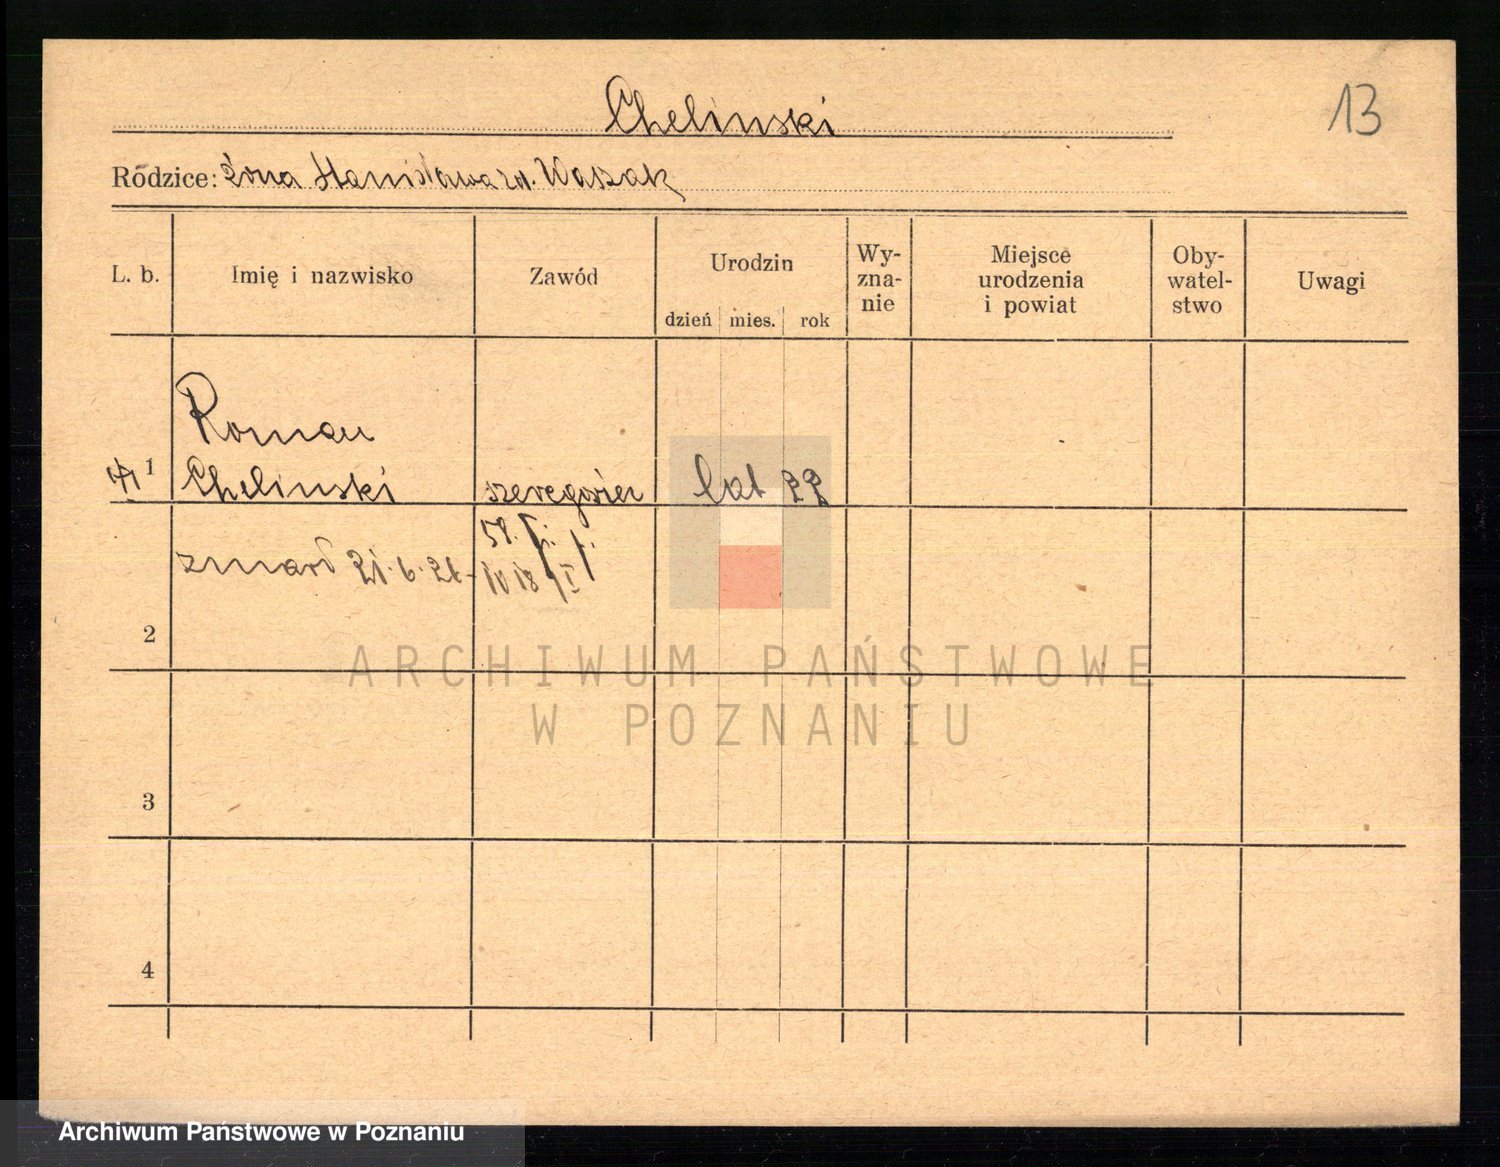 Chelinski
13
Rodzice: żona Stanisława zd. Waszak
L. b.
Imię i nazwisko
Zawód
Urodzin
dzień mies. rok
Wy-
zna-
nie
Miejsce
urodzenia
i powiat
Oby-
watel-
stwo
Uwagi
Roman
1 Chelinski szeregowiec lat 22
58.
zmarł 21.6.26
2
3
4
ARCHIWUM PAŃSTWOWE
W POZNANIU
Archiwum Państwowe w Poznaniu